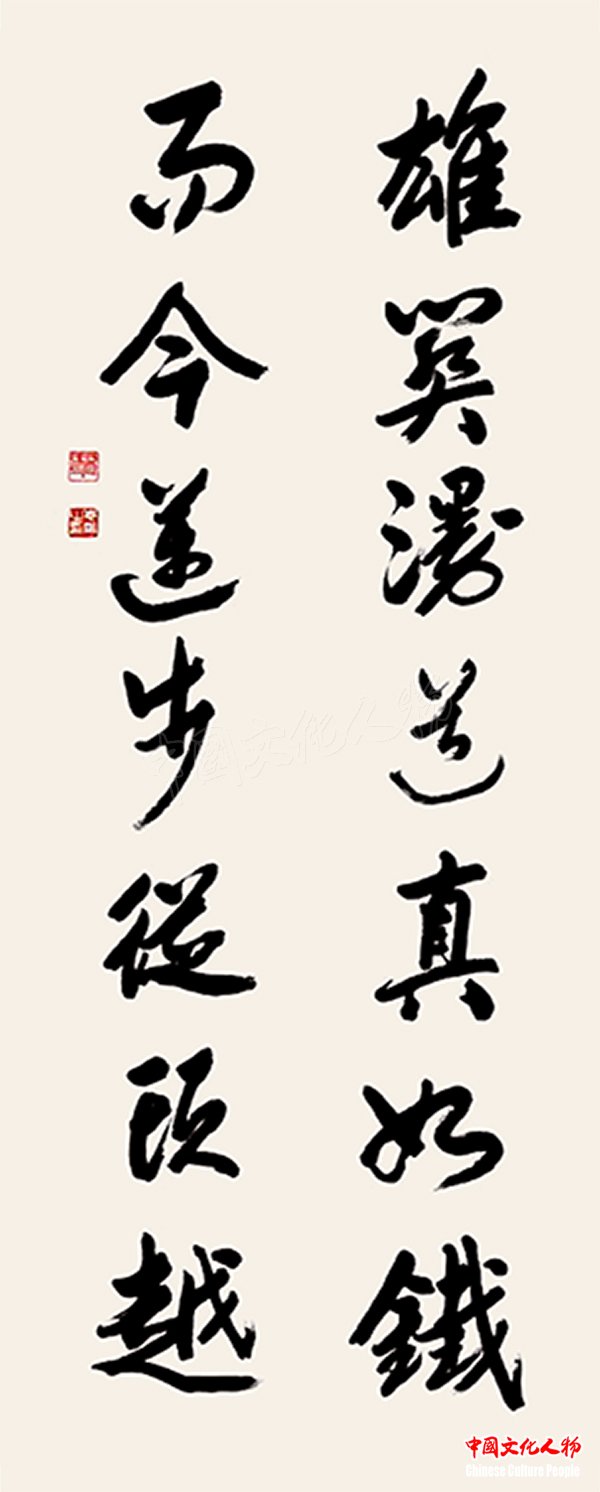 雄関漫道真如鐵
而今邁步從頭越
中國文化人物
中國文化人物
Chinese Culture People